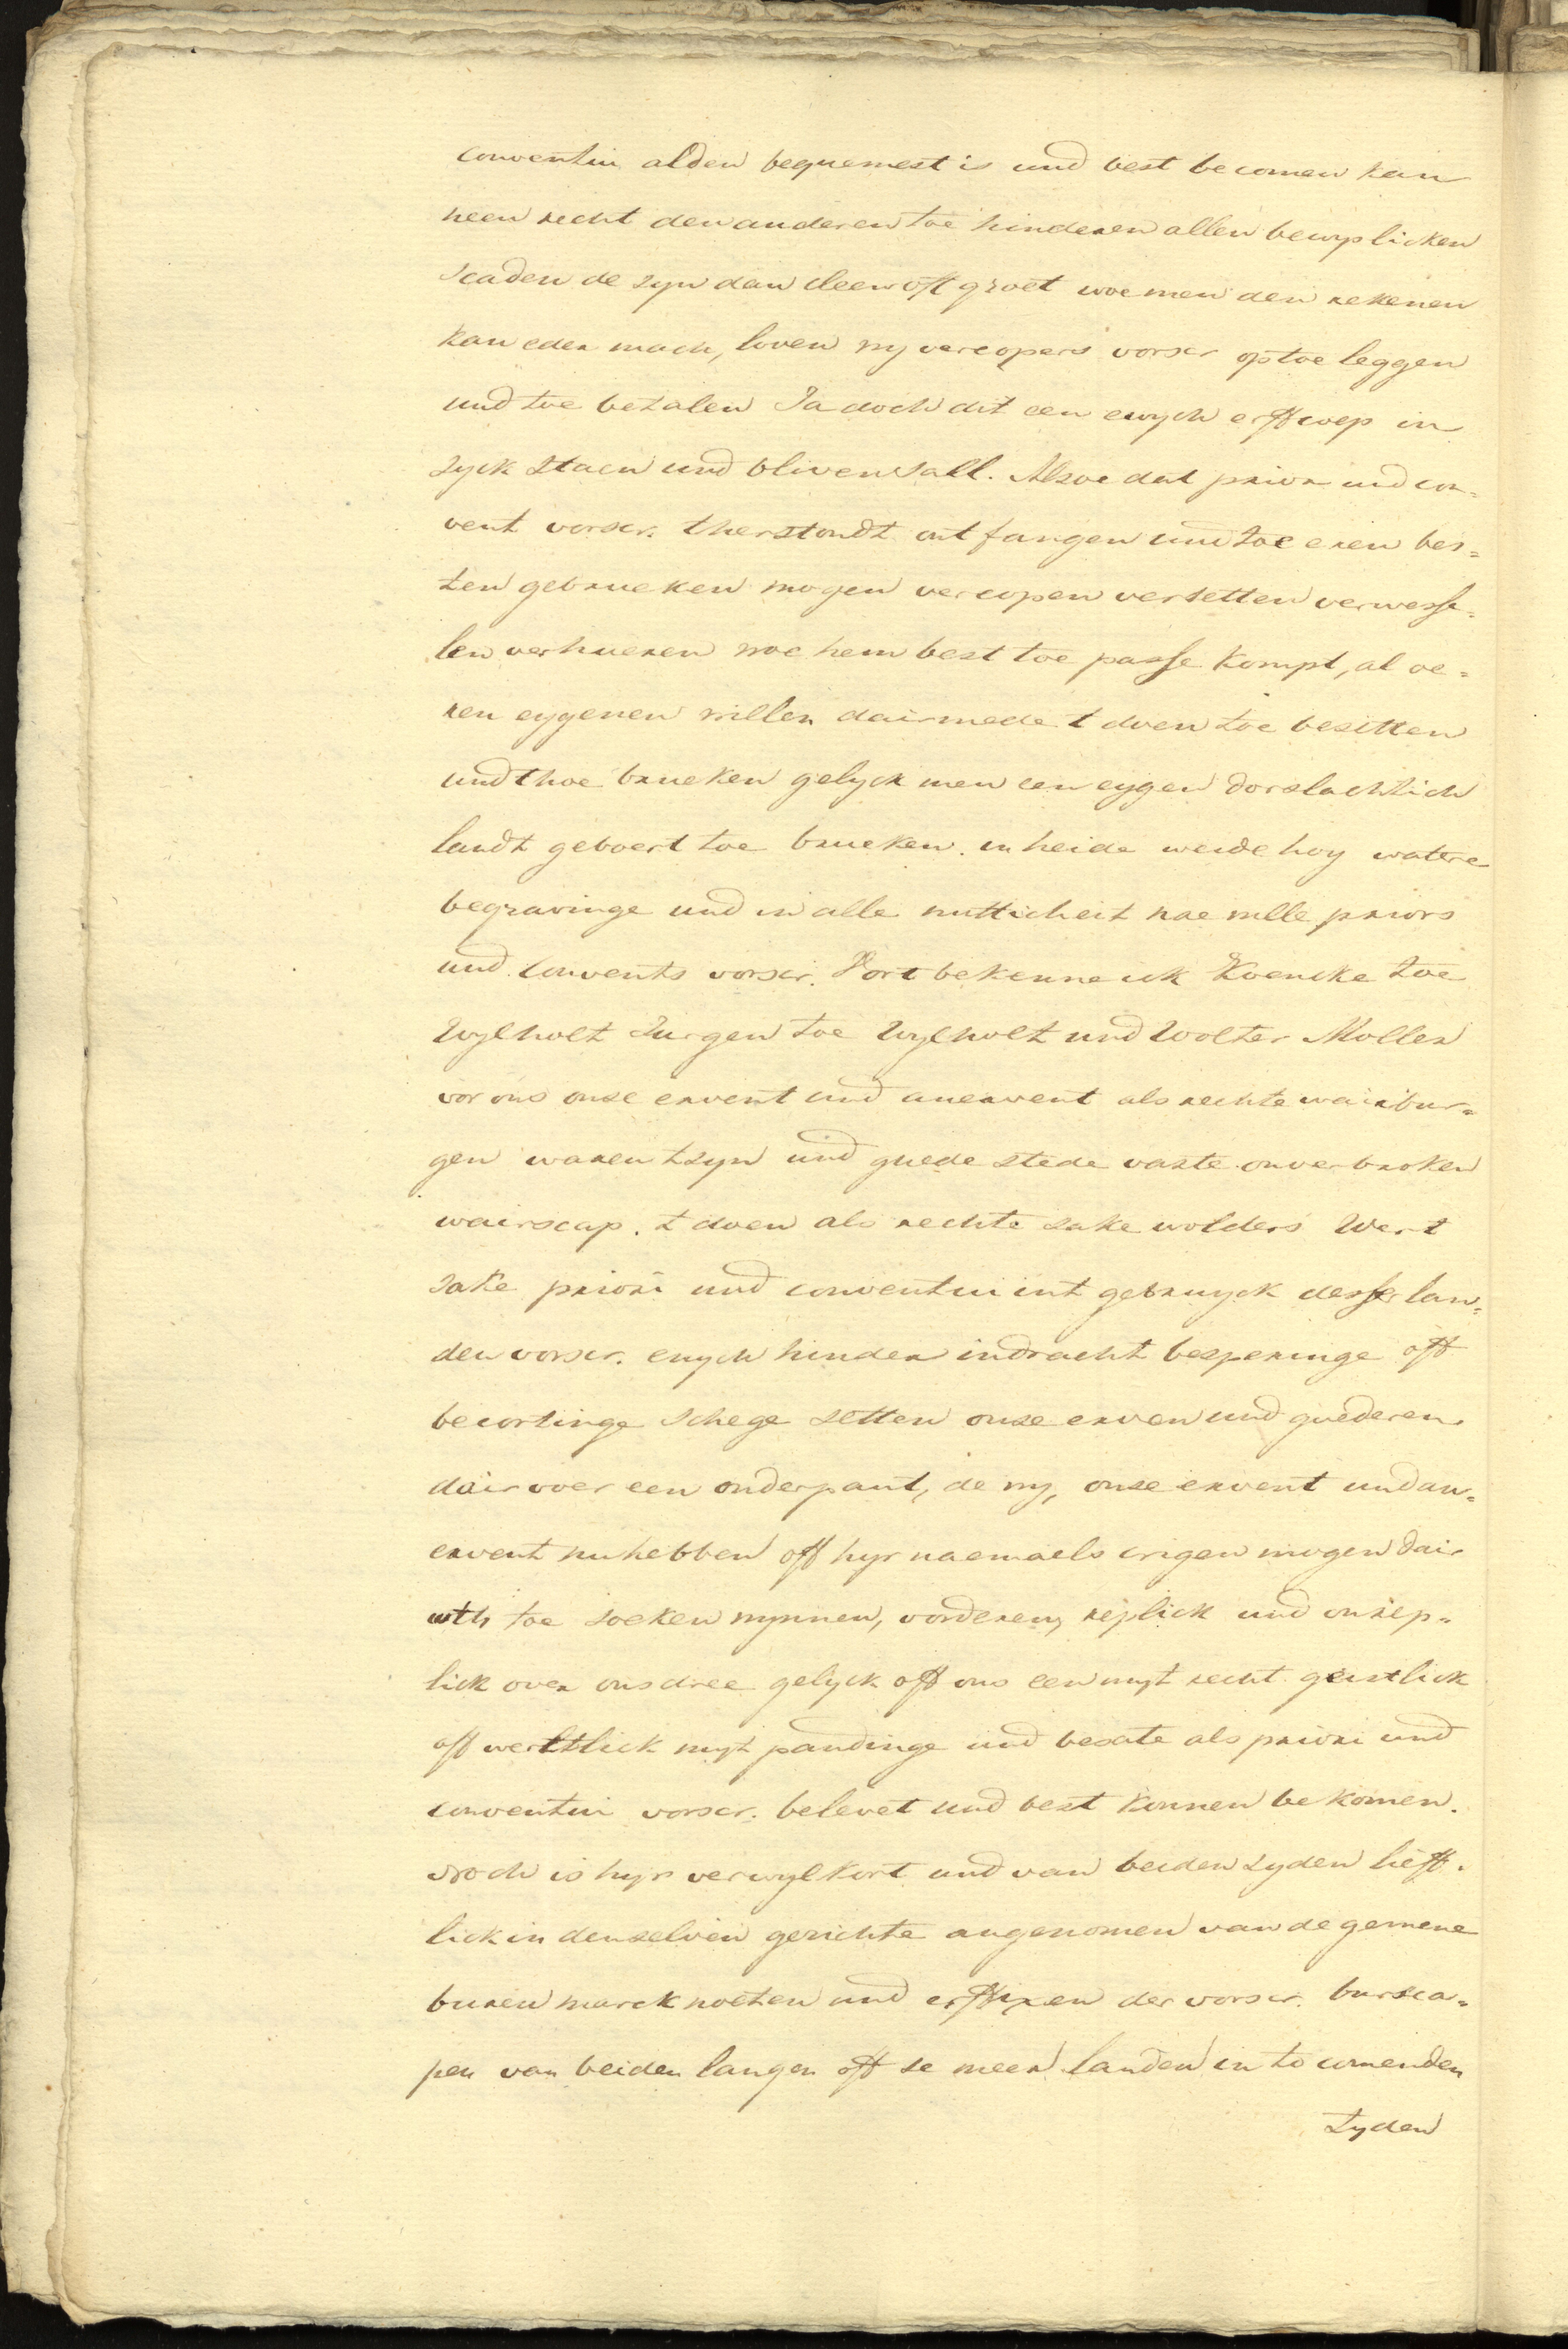 conventui alden bequemest is und best becomen kan
neen recht den anderen toe hinderen allen bewyslicken
scaden de zyn dan cleen oft groet woe men den rekenen
kan eder mach, loven wy vercopers vorscr op toe leggen
und toe betalen Ja doch dit een ewych erffcoep in
zyck staen und bliven sall. Alsoe dat prior und con=
vent vorscr. therstondt ontfangen und toe eren bes=
ten gebrueken mogen vercopen versetten verwesse=
len verhueren woe hem best toe passe kompt, al oe=
ren eygenen willen dairmede t doen toe besitten
und thoe brueken gelyck men een eygen dorslachtich
landt geboert toe brueken. in heide weide hoy watere
begravinge und in alle nutticheit nae wille priors
und Convents vorscr. Vort bekenne ick Koencke toe
Wylholt Jurgen toe Wylholt und Wolter Moller
vor ons onse ervent und anervent als rechte wairbur=
gen waren tzyn und guede stede vaste onverbroken
wairscap. t doen als rechte sake wolders Wert
sake priori und conventui int gebruyck desser lan=
den vorscr. enych hinder indracht besperinge off
becortinge schege setten onse erven und guederen
dair voer een onderpant, de wy, onse ervent und an=
ervent nu hebben off hyr naemaels crigen mogen dair
wth toe soeken wynnen, vorderen, rejslick und onrep=
lick over ons dree gelyck off ons een myt recht geistlick
off werltlick myt pandinge und besate als priori und
conventui vorscr. belevet und best konnen bekomen.
Noch is hyr verwylkort und van beiden zyden lieff=
lick in denselven gerichte angenomen van de gemene
buren marcknoeten und erffexen der vorscr. bursca=
pen van beiden langen off se meer landen in to comenden
tyden